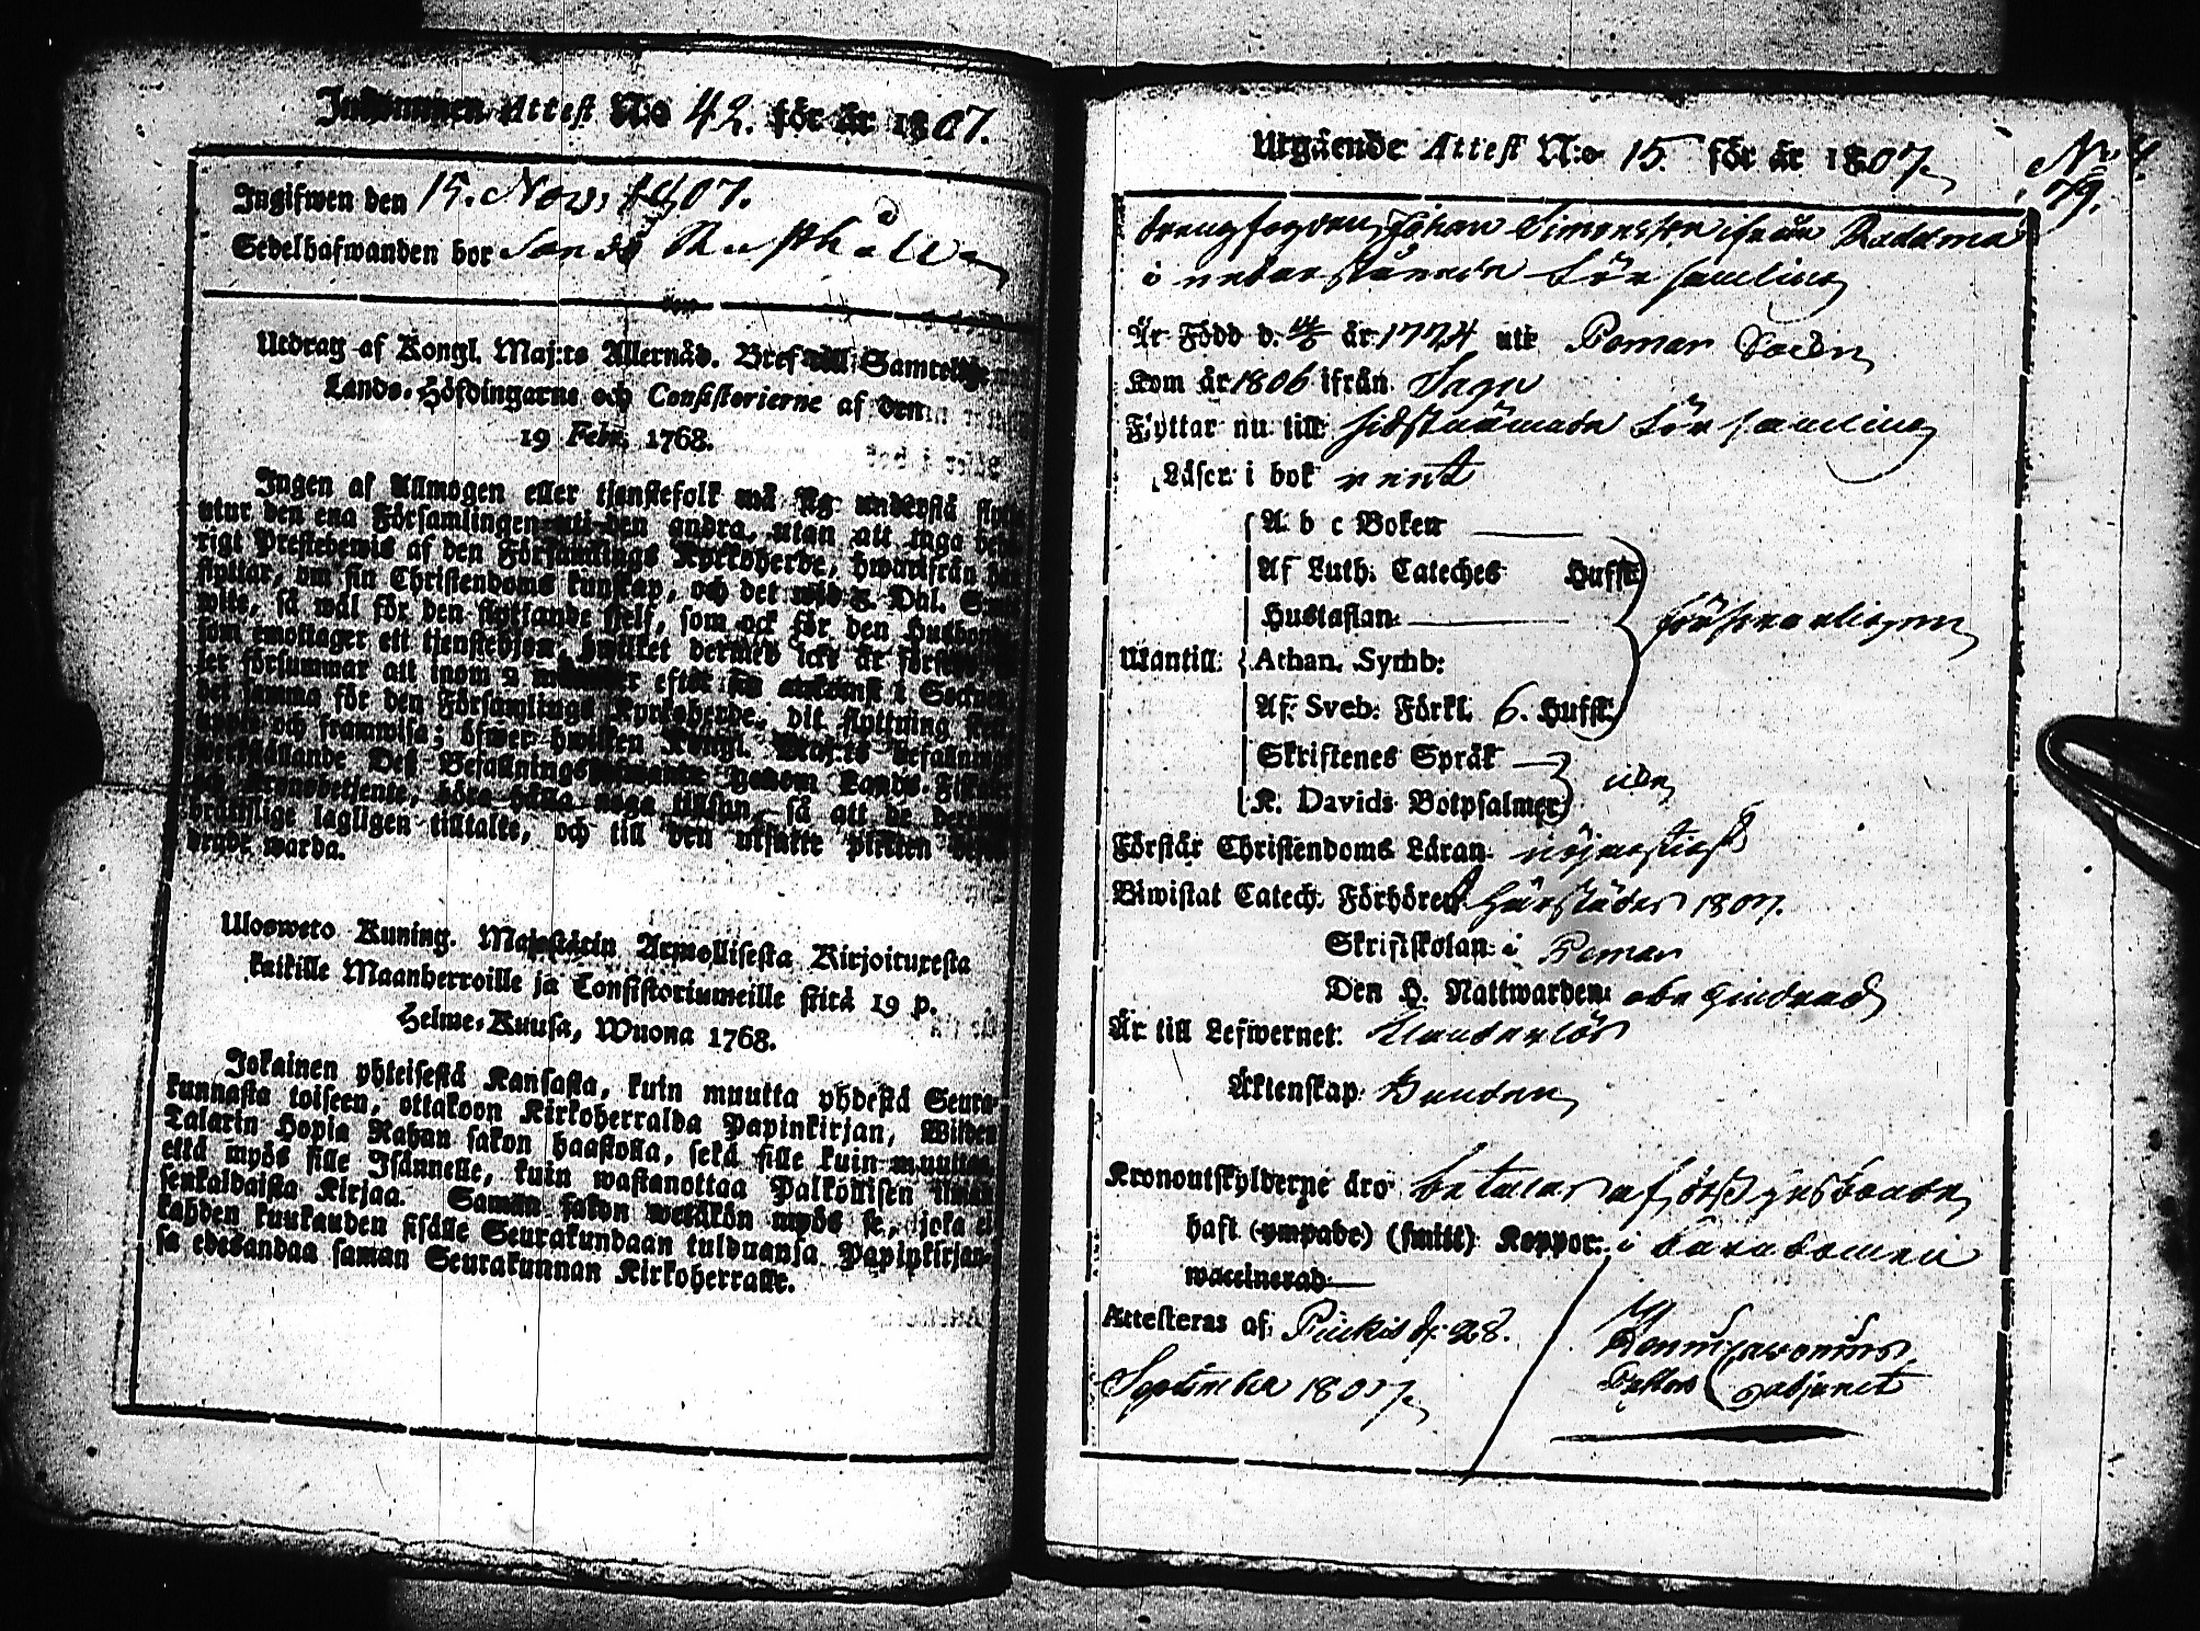 Inkommen Attest N:o 42. för år 1807.
Ingifwen den 15. Nov. 1807.
Sedelhafwanden bor
Utdrag af Kongl. Maj:ts Allernåd. Bref till Samtelige
Lands-Höfdingarne och Consistorierne af den
19 Febr. 1768.
Ingen af Allmogen eller tjenstefolk må sig understå flytta
utur den ena Församlingen uti den andra, utan att taga behö-
rigt Prestebewis af den Församlings Kyrkoherde, hwarifrån han
flyttar, om sin Christendoms kunskap, och det wid 2. Dal. S:mts
wite, så wäl för den flyttande sjelf, som ock för den Husbonde
som emottager ett tjenstehjon, hwilket dermed icke är försedt, el-
ler försummar att inom 2 månader efter sin ankomst i Socknen
det samma för den Församlings Kyrkoherde, dit flyttning sker
uppte och framwisa; öfwer hwilken Kongl. Maj:ts befallnings
werkställande Deß Befallningshafwande genom Lands Fiscaler
och Kronobetjente, böra hålla noga tillsyn, så att de deremot
bråttslige lagligen tilltalte, och till den utsatte plikten böte-
fälde warda.
Ulosweto Kuning. Majestätin Armollisesta Kirjoituxesta
kaikille Maanherroille ja Consistoriumeille siitä 19 p.
Helme-Kuusa, Wuona 1768.
Jokainen yhteisestä Kansasta, kuin muutta yhdestä Seura-
kunnasta toiseen, ottakoon Kirkoherralda Papinkirjan, Wiiden
Talarin Hopia Rahan sakon haastolla, sekä sille kuin muuttaa,
että myös sille Isännelle, kuin wastanottaa Palkollisen ilman
senkaldaista Kirjaa. Saman sakon wetäkön myös se, joka ei
kahden kuukauden sisälle Seurakundaan tulduansa Papinkirjan-
sa edesandaa saman Seurakunnan Kirkoherralle.
Utgående Attest N:o 15. för år 1807.
N:o 79.
Drengfogden Johan Simonsson ifrån Raddma
i nedanstående Församling
Är Född d. år 1774 uti Pomar Socken
Kom år 1806 ifrån Sagu
Flyttar nu till sidstnämde Församling
Läser i bok rent
A b c Boken
Af Luth. Cateches Hufst.
Hustaflan
Utantill: Athan. Symb:
Af Sveb: Förkl. 6. Hufst.
försvarligen
Skriftenes Språk
K. Davids Botpsalmer
Förstår Christendoms Läran nöjacktigt
Biwistat Catech. Förhören härstädes 1807.
Skriftskolan i Pemar
Den H. Nattwarden obehindrad
Är till Lefwernet: Klanderlös
Äktenskap:
Kronoutskylderne äro betalas af deß husbonde
haft (ympade) (smitt) Koppor: i barndomen
waccinerad
Attesteras af, Piikis d: 28.
September 1807.
Pastors Adjunct